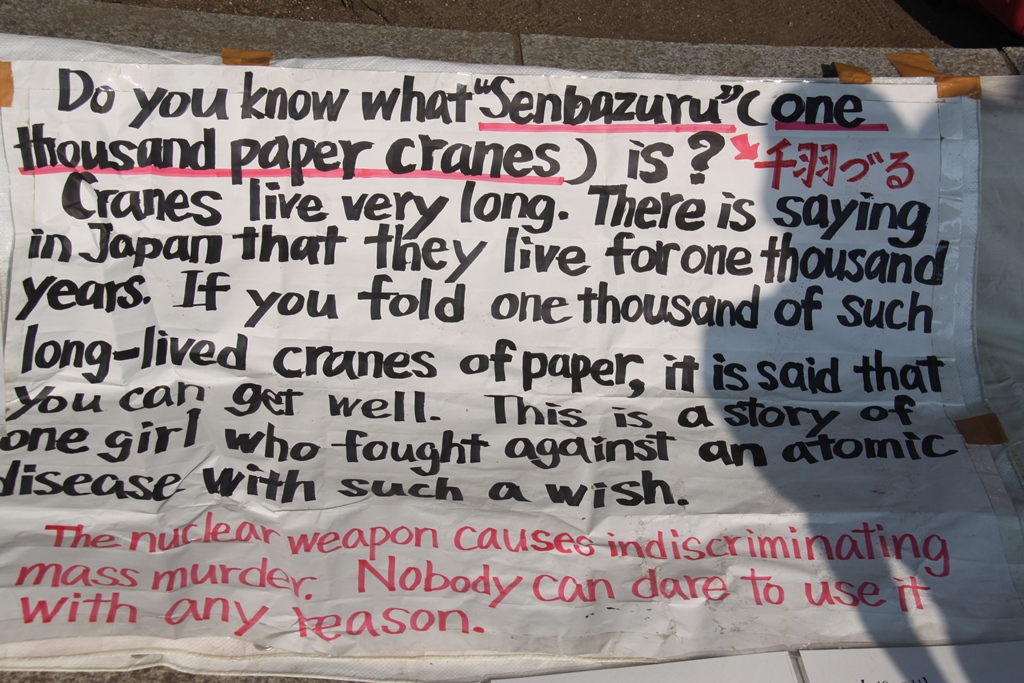 Do you know what "Senbazuru" (one
thousand paper cranes) is? 千羽づる
Cranes live very long. There is saying
in Japan that they live for one thousand
years. If you fold one thousand of such
long-lived cranes of paper, it is said that
you can get well. This is a story of
one girl who fought against an atomic
disease with such a wish.
The nuclear weapon causes indiscriminating
mass murder. Nobody can dare to use it
with any reason.